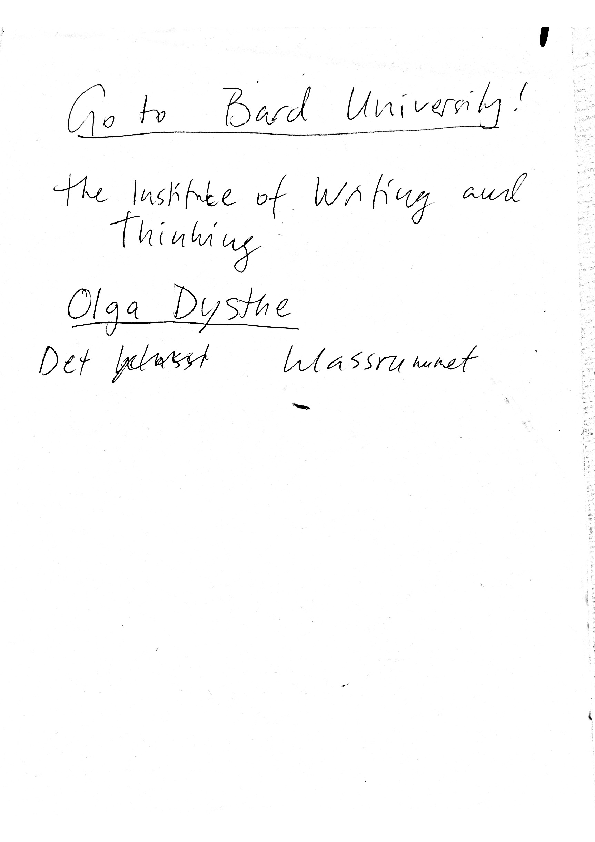 Go to Bard University!
the Institute of Writing and
Thinking
Olga Dysthe
Det klassrummet